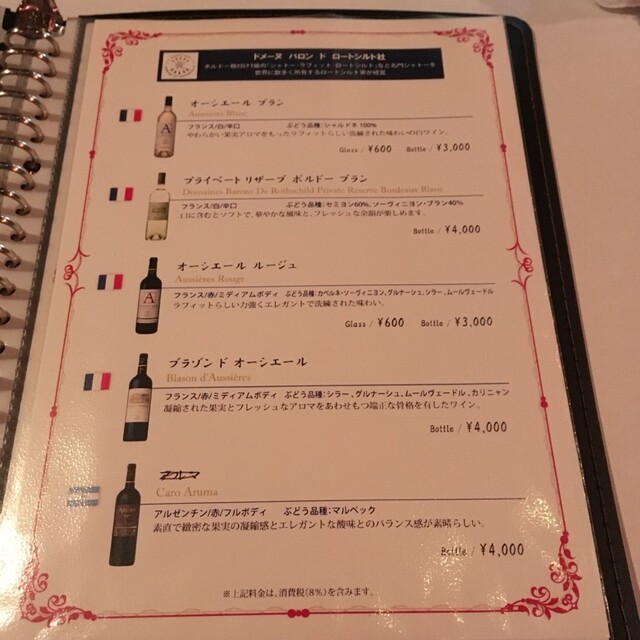 ドメーヌ バロン ド ロートシルト社
ボルドー格付け1級の「シャトー・ラフィット・ロートシルト」など名門シャトーを
世界に数多く所有するロートシルト家が経営
オーシエール ブラン
Aussières Blanc
フランス/白/辛口 ぶどう品種:シャルドネ 100%
やわらかい果実アロマをもったラフィットらしい洗練された味わいの白ワイン。
Glass / ¥600 Bottle / ¥3,000
プライベートリザーブ ボルドー ブラン
Domaines Barons De Rothschild Private Reserve Bordeaux Blanc
フランス/白/辛口 ぶどう品種:セミヨン60%、ソーヴィニヨン・ブラン40%
口に含むとソフトで、華やかな風味と、フレッシュな余韻が楽しめます。
Bottle / ¥4,000
オーシエール ルージュ
Aussières Rouge
フランス/赤/ミディアムボディ ぶどう品種:カベルネ・ソーヴィニヨン、グルナーシュ、シラー、ムールヴェードル
ラフィットらしい力強くエレガントで洗練された味わい。
Glass / ¥600 Bottle / ¥3,000
ブラゾンド オーシエール
Blason d'Aussières
フランス/赤/ミディアムボディ ぶどう品種:シラー、グルナーシュ、ムールヴェードル、カリニャン
凝縮された果実とフレッシュなアロマをあわせもつ端正な骨格を有したワイン。
Bottle / ¥4,000
Caro Aruma
アルゼンチン/赤/フルボディ ぶどう品種:マルベック
素直で緻密な果実の凝縮感とエレガントな酸味とのバランス感が素晴らしい。
Bottle / ¥4,000
※上記料金は、消費税(8%)を含みます。